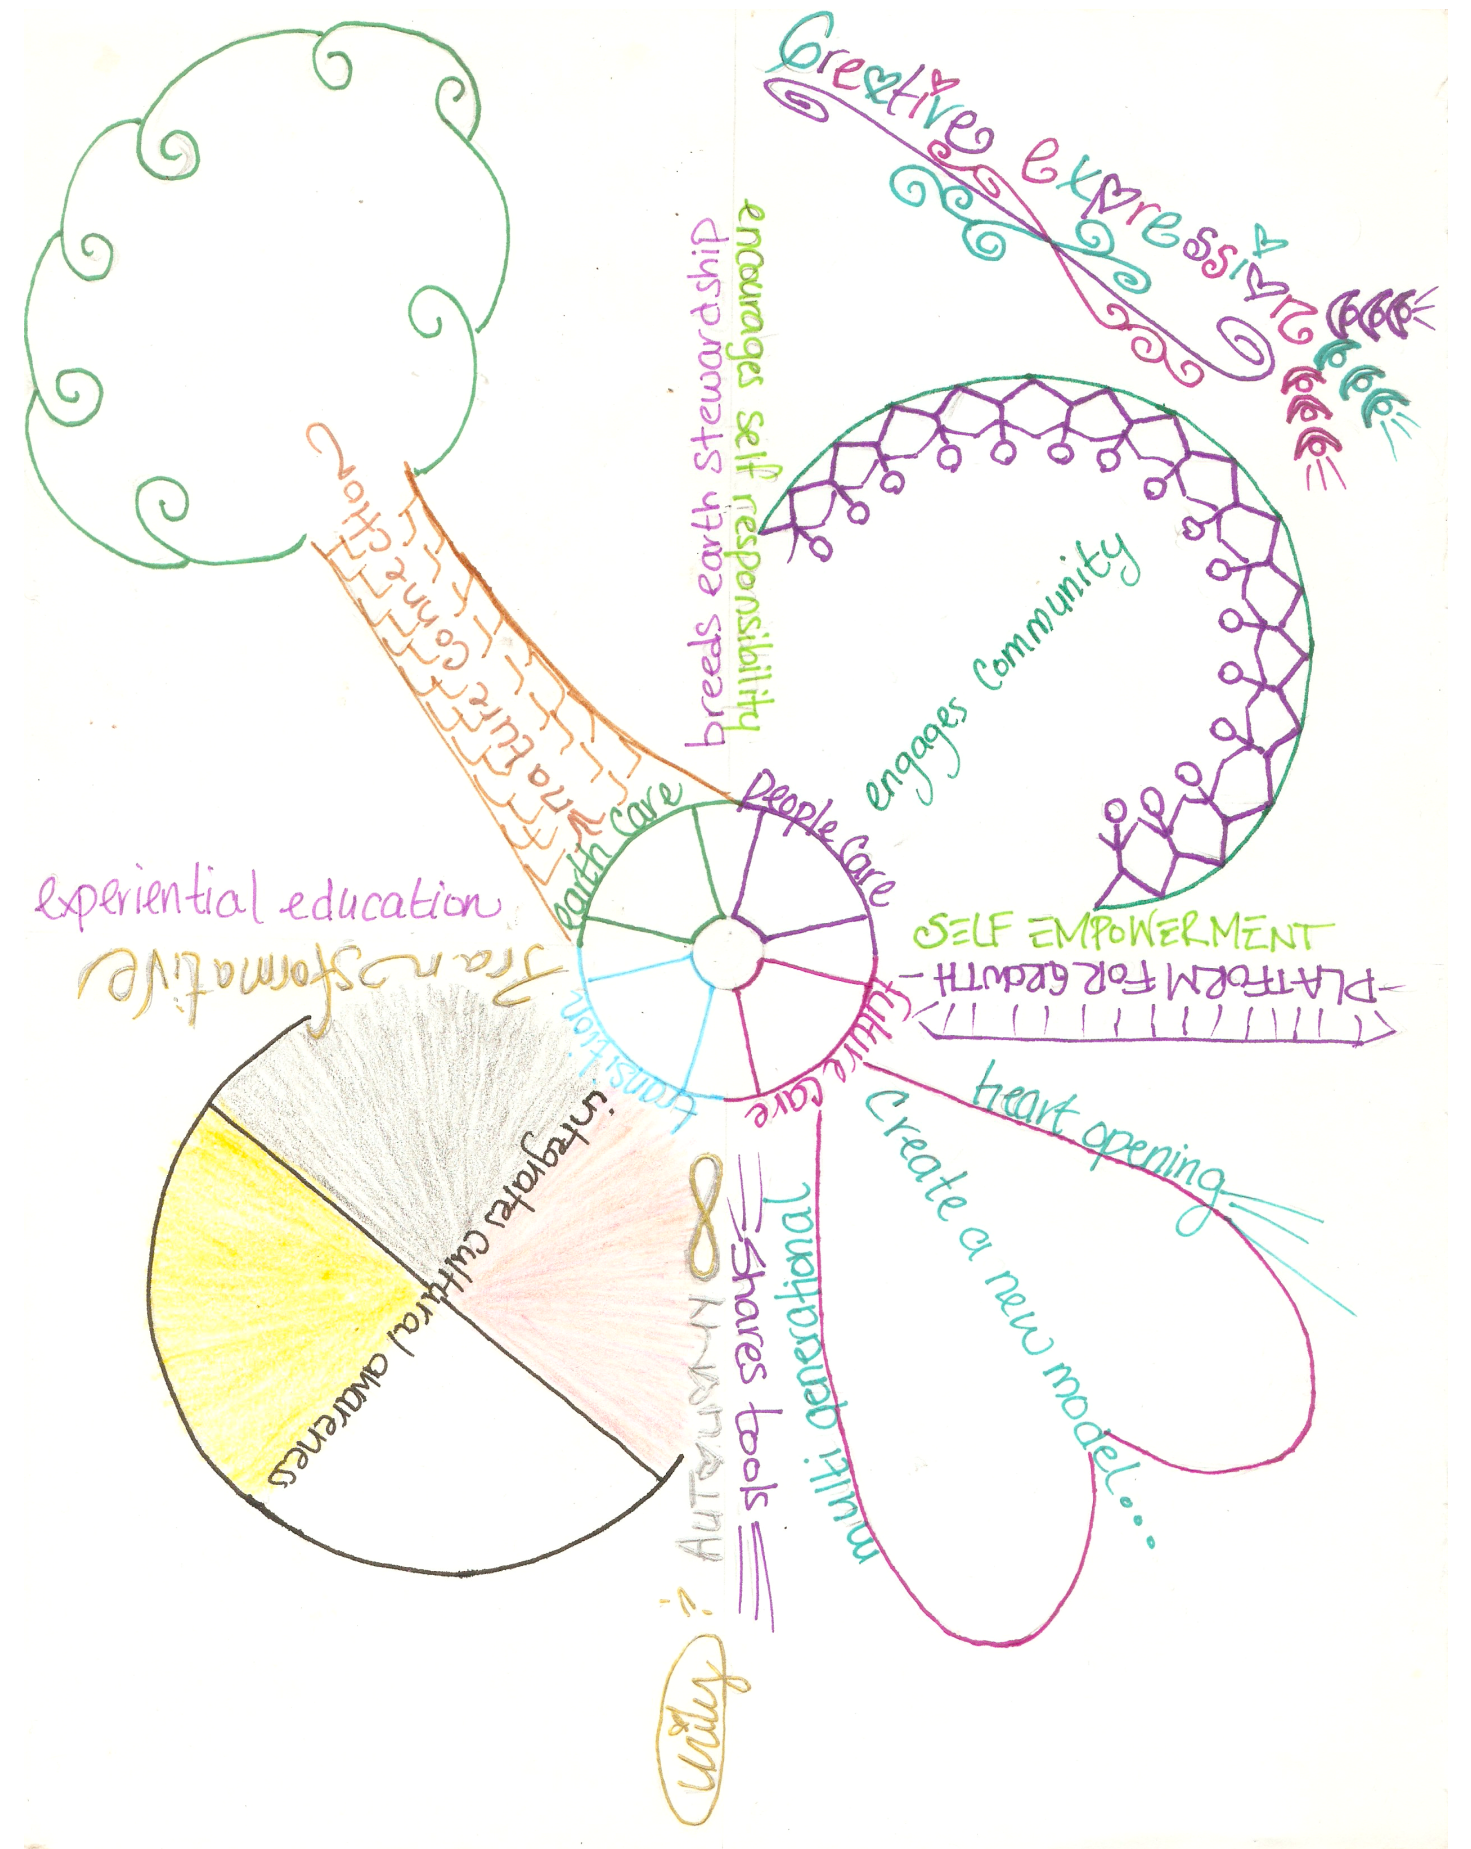 Creative expression
breeds earth stewardship
encourages self responsibility
nature connection
engages community
earth care
people care
future care
transition
experiential education
Transformative
SELF EMPOWERMENT
-PLATFORM FOR GROWTH-
heart opening
Create a new model...
multi generational
Shares tools
AUTONOMY
unity
integrates cultural awareness